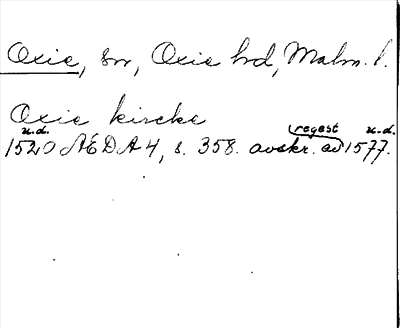 Oxie, sn, Oxie hd, Malm. l.
Oxie kircke
u.d. regest u.d.
1520 ÆDA 4, s. 358. avskr. av 1577.